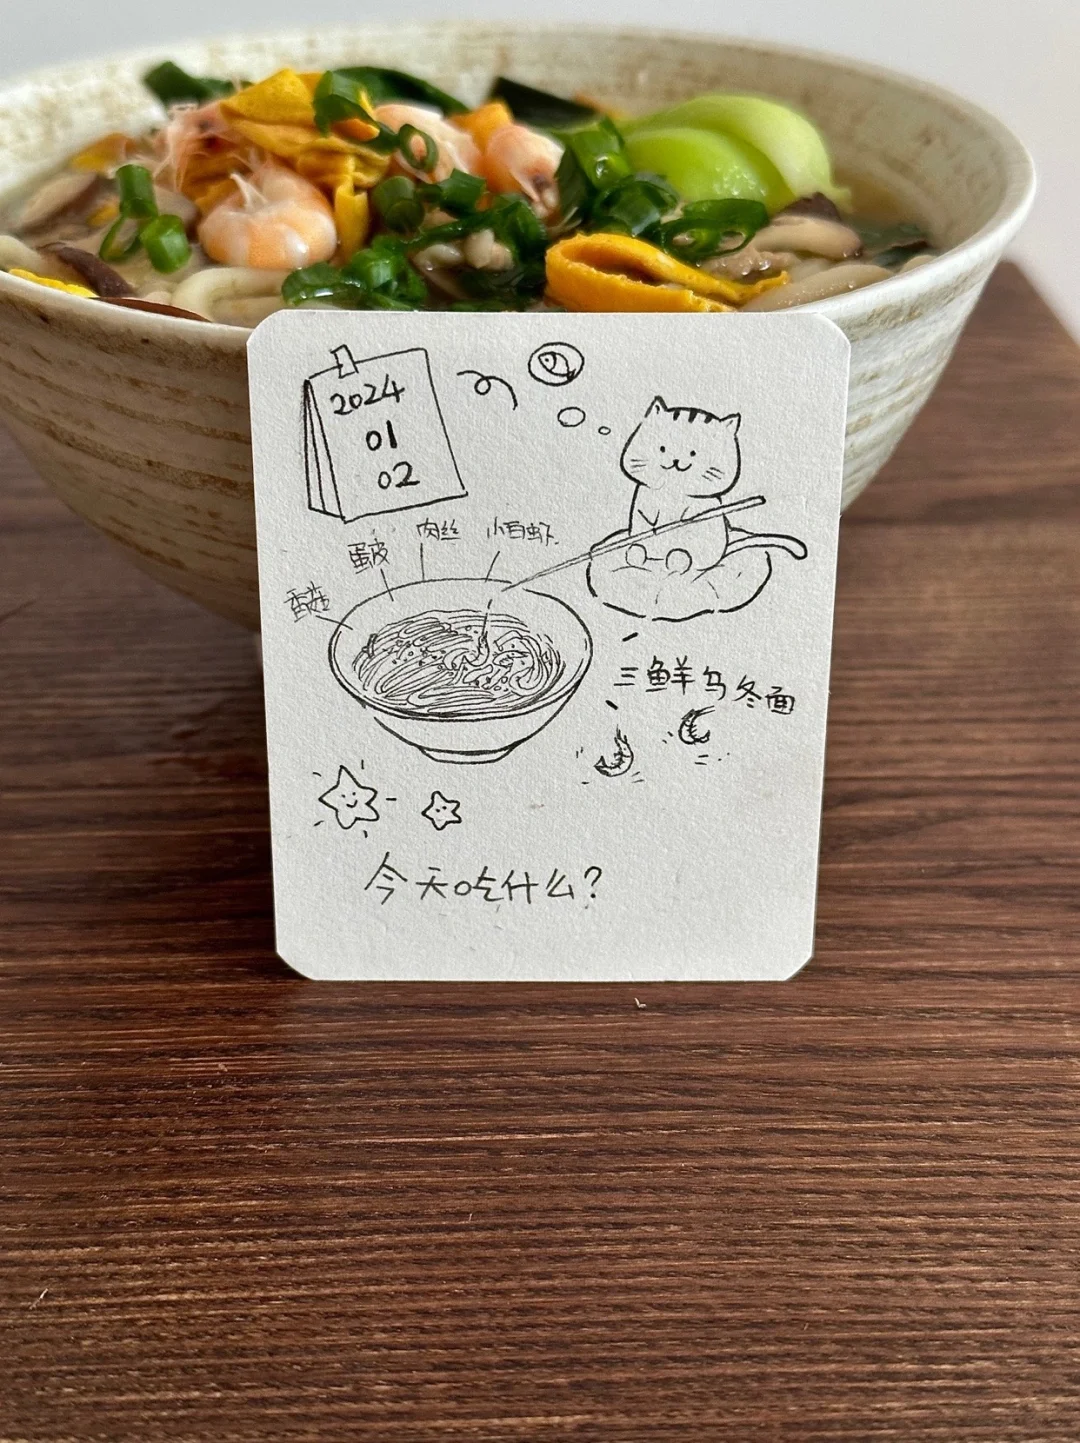 2024
01
02
香菇
蛋皮
肉丝
小白虾
三鲜乌冬面
今天吃什么?